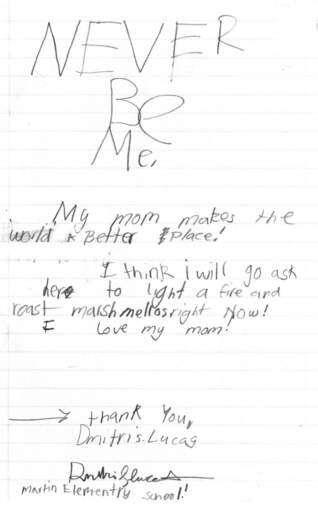 NEVER
Be
Me.
My mom makes the
world a Better Place!
I think i will go ask
here to light a fire and
roast marshmellos right Now!
I love my mom!
thank You,
Dmitri S. Lucas
Martin Elementry school!